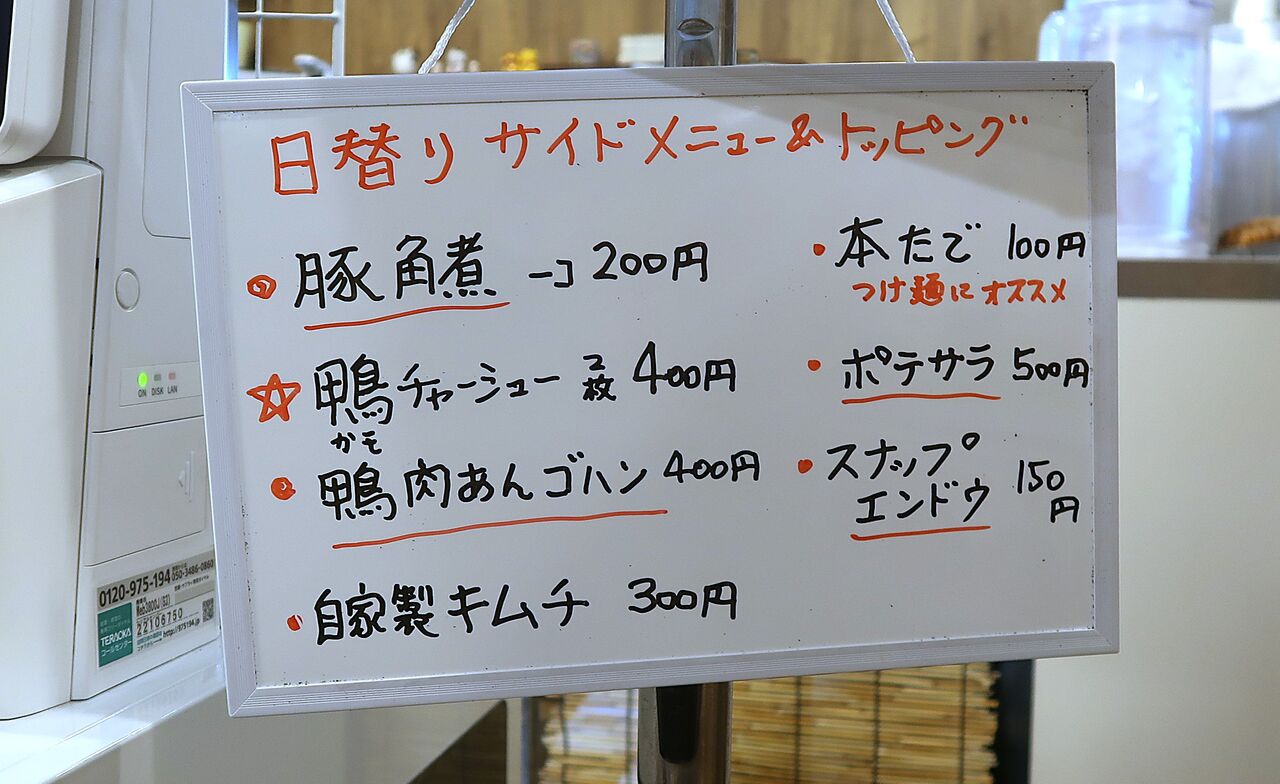 日替り サイドメニュー&トッピング
豚角煮 一コ 200円
鴨チャーシュー 2枚 400円
かモ
鴨肉あんゴハン 400円
自家製キムチ 300円
本たで 100円
つけ麺にオススメ
ポテサラ 500円
スナップ
エンドウ 150円
ON DISK LAN
0120-975-194 050-3486-0860
Web3800J
22106750
TERAOKA http://975194.jp
コールセンター